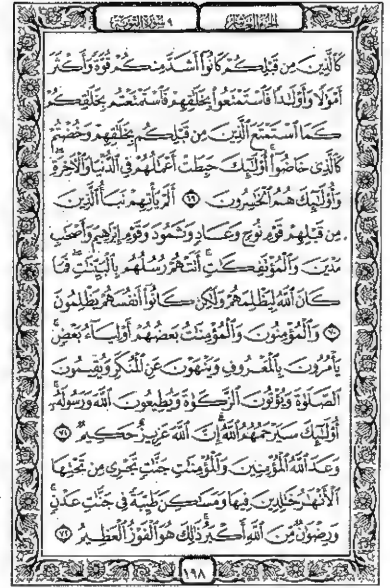 الجزء العاشر ٩ سورة التوبة
كَٱلَّذِينَ مِن قَبْلِكُمْ كَانُوٓا۟ أَشَدَّ مِنكُمْ قُوَّةً وَأَكْثَرَ
أَمْوَٰلًا وَأَوْلَٰدًا فَٱسْتَمْتَعُوا۟ بِخَلَٰقِهِمْ فَٱسْتَمْتَعْتُم بِخَلَٰقِكُمْ
كَمَا ٱسْتَمْتَعَ ٱلَّذِينَ مِن قَبْلِكُم بِخَلَٰقِهِمْ وَخُضْتُمْ
كَٱلَّذِى خَاضُوٓا۟ أُو۟لَٰٓئِكَ حَبِطَتْ أَعْمَٰلُهُمْ فِى ٱلدُّنْيَا وَٱلْءَاخِرَةِ
وَأُو۟لَٰٓئِكَ هُمُ ٱلْخَٰسِرُونَ ٦٩ أَلَمْ يَأْتِهِمْ نَبَأُ ٱلَّذِينَ
مِن قَبْلِهِمْ قَوْمِ نُوحٍ وَعَادٍ وَثَمُودَ وَقَوْمِ إِبْرَٰهِيمَ وَأَصْحَٰبِ
مَدْيَنَ وَٱلْمُؤْتَفِكَٰتِ أَتَتْهُمْ رُسُلُهُم بِٱلْبَيِّنَٰتِ فَمَا
كَانَ ٱللَّهُ لِيَظْلِمَهُمْ وَلَٰكِن كَانُوٓا۟ أَنفُسَهُمْ يَظْلِمُونَ
٧٠ وَٱلْمُؤْمِنُونَ وَٱلْمُؤْمِنَٰتُ بَعْضُهُمْ أَوْلِيَآءُ بَعْضٍ
يَأْمُرُونَ بِٱلْمَعْرُوفِ وَيَنْهَوْنَ عَنِ ٱلْمُنكَرِ وَيُقِيمُونَ
ٱلصَّلَوٰةَ وَيُؤْتُونَ ٱلزَّكَوٰةَ وَيُطِيعُونَ ٱللَّهَ وَرَسُولَهُۥٓ
أُو۟لَٰٓئِكَ سَيَرْحَمُهُمُ ٱللَّهُ إِنَّ ٱللَّهَ عَزِيزٌ حَكِيمٌ ٧١
وَعَدَ ٱللَّهُ ٱلْمُؤْمِنِينَ وَٱلْمُؤْمِنَٰتِ جَنَّٰتٍ تَجْرِى مِن تَحْتِهَا
ٱلْأَنْهَٰرُ خَٰلِدِينَ فِيهَا وَمَسَٰكِنَ طَيِّبَةً فِى جَنَّٰتِ عَدْنٍ
وَرِضْوَٰنٌ مِّنَ ٱللَّهِ أَكْبَرُ ذَٰلِكَ هُوَ ٱلْفَوْزُ ٱلْعَظِيمُ ٧٢
١٩٨